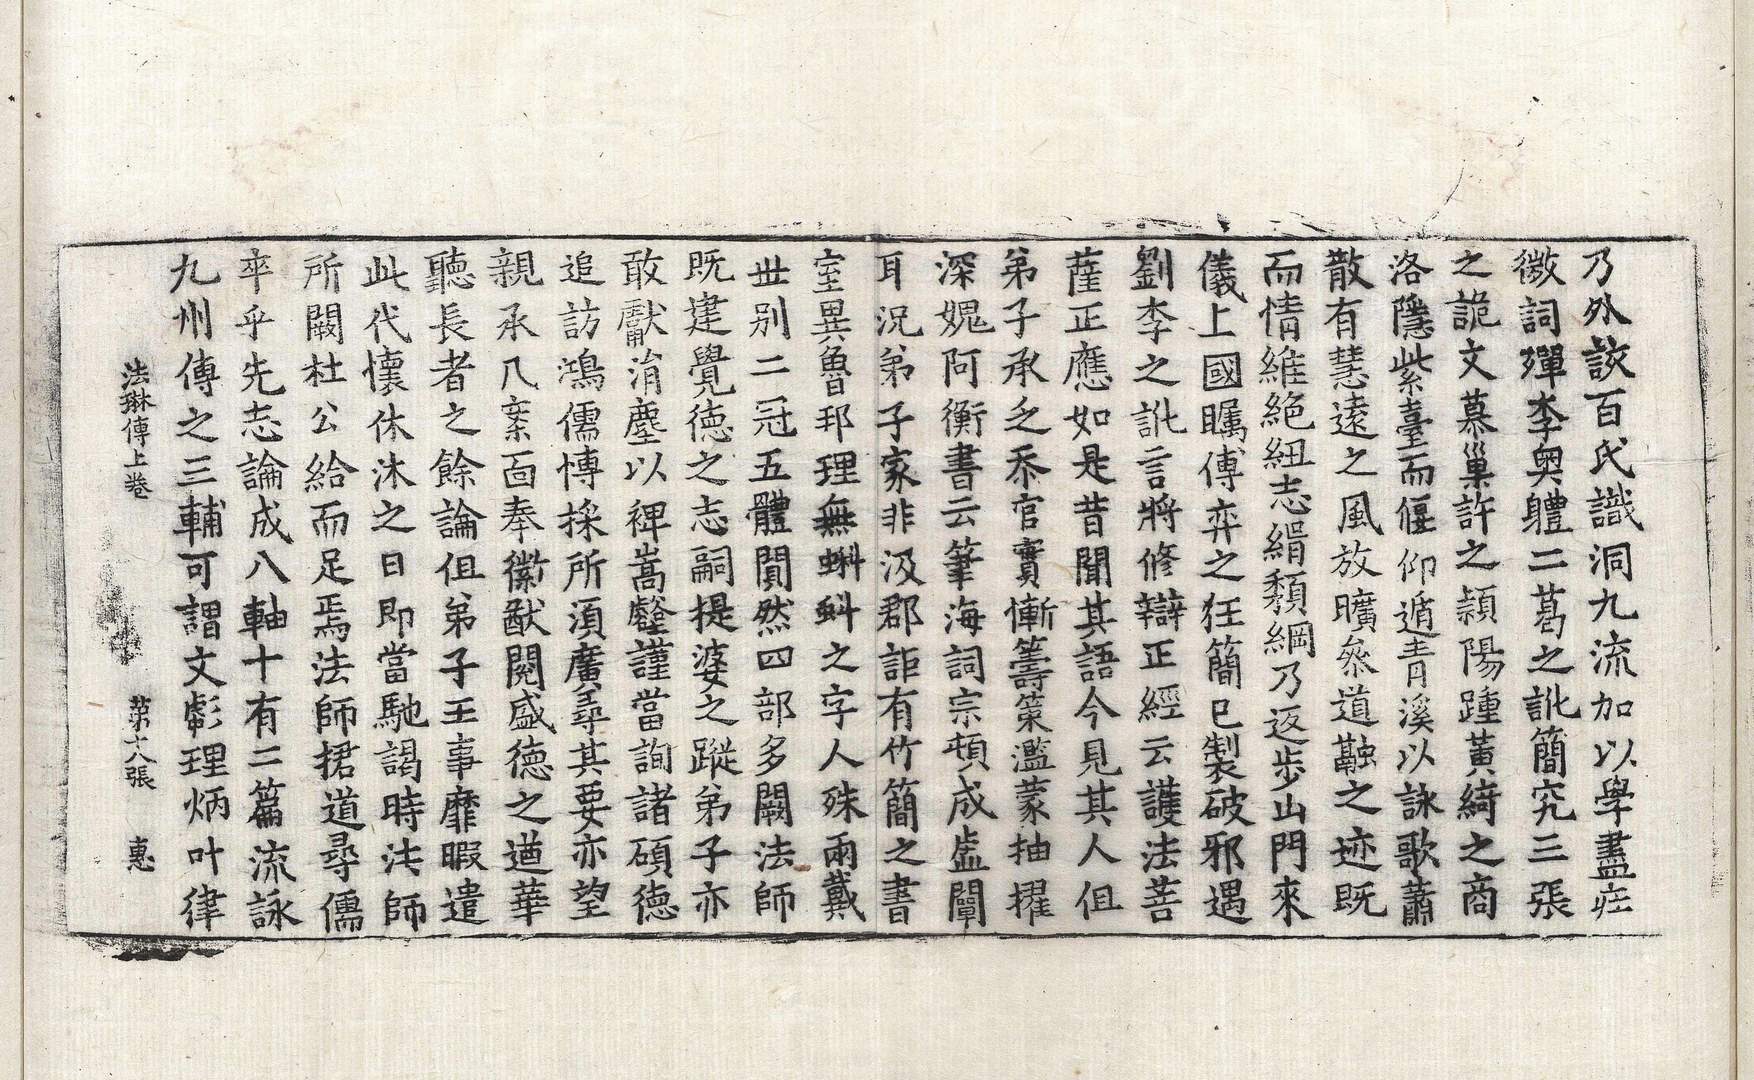 乃外該百氏識洞九流加以學盡莊
微詞殫李奧軆二葛之訛簡究三張
之詭文慕巢許之潁陽踵黃綺之商
洛隱紫臺而偃仰遁青溪以詠歌蕭
散有慧遠之風放曠叅道融之迹既
而情維絶紐志緝頽綱乃返步山門來
儀上國矚傅弈之狂簡已製破邪遇
劉李之訛言將修辯正經云護法菩
薩正應如是昔聞其語今見其人但
弟子承乏忝官實慚籌策濫蒙抽擢
深媿阿衡書云筆海詞宗頓成虛闡
耳況弟子家非汲郡詎有竹簡之書
室異魯邦理無蝌蚪之字人殊兩戴
世別二冠五體闃然四部多闕法師
旣建覺德之志嗣提婆之蹤弟子亦
敢獻涓塵以裨嵩壑謹當詢諸碩德
追訪鴻儒愽採所須廣尋其要亦望
親承几案面奉徽猷閱盛德之遒華
聽長者之餘論但弟子王事靡暇遣
此代懷休沐之日即當馳謁時法師
所闕杜公給而足焉法師捃道尋儒
卒乎先志論成八軸十有二篇流詠
九州傳之三輔可謂文彪理炳叶律
法琳傳上卷 第十八張 惠